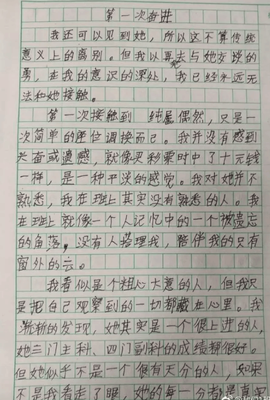 第一次奋进
我还可以见到她，所以这不算传统
意义上的离别。但我以再去与她交谈的
勇，在我的意识的深处，我已经永远无
法和她接触。
第一次接触到 纯属偶然，只是一
次简单的座位调换而已。我并没有感到
失面或遗憾，就像买彩票时中了十元钱
一样，是一种平淡的感觉。我对她并不
熟悉，我在班上其实没有熟悉的人。我
在班上就像一个人记忆中的一个被遗忘
的角落，没有人搭理我，陪伴我的只有
窗外的云。
我看似是个粗心大意的人，但我只
是把自己观察到的一切都藏在心里。我
的发现，她其实是一个很上进的人，
她三门主科、四门副科的成绩都很好。
但她似乎不是一个很有天分的人，如果
不是我看走了眼，她的每一分都是真实